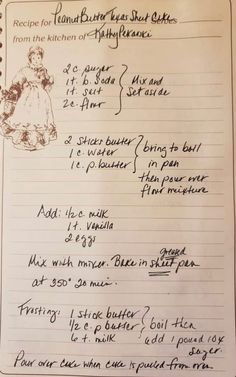 Peanut Butter Texas Sheet Cake
Recipe for
from the kitchen of Kathy
2 c. sugar
1 t. b. Soda
1 t. salt
2 c. flour
Mix and
set aside
2 sticks butter
1 c. water
1 c. p. butter
bring to boil
in pan
then pour over
flour mixture
Add: 1/2 c milk
1 t. Vanilla
2 eggs
greased
Mix with mixer. Bake in sheet pan
at 350° 20 min.
Frosting: 1 stick butter
1/2 c. p butter
6 t. milk
boil then
add 1 pound 10x
sugar.
Pour over cake when cake is pulled from oven